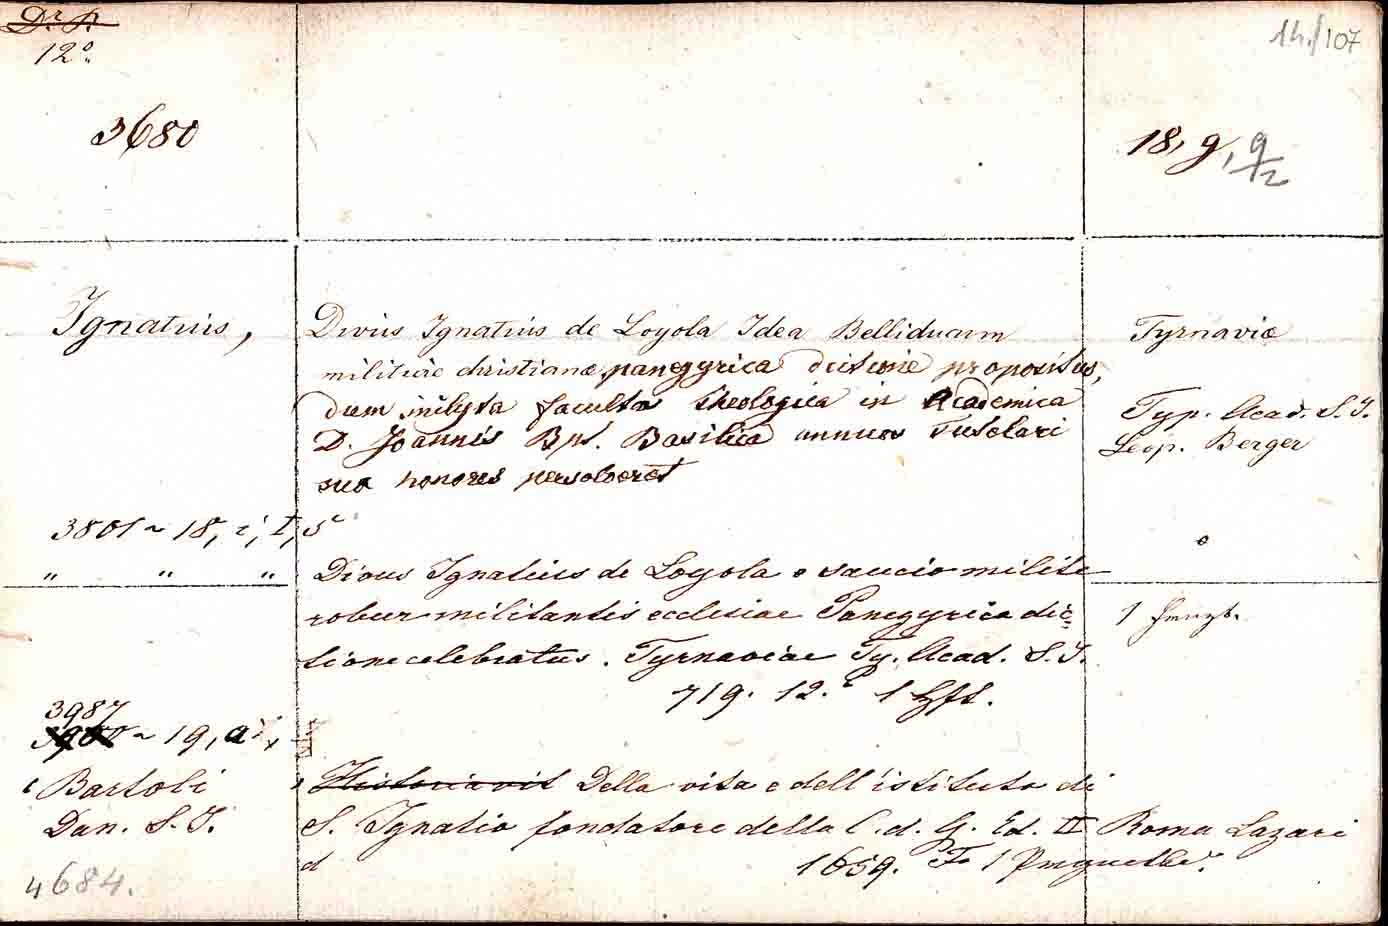 12°.
14./107
3680
18, g, 9/2
Ignatius,
Divus Ignatius de Loyola Idea Belliducum
militiae christianae, panegyrica dictione propositus,
dum inclyta facultas theologica in Academica
D. Joannis Bpt. Basilica annuos tutelari
suo honores persolveret
Tyrnaviæ
Typ. Acad. S. J.
Leop. Berger
3801 ~ 18, i, I, 5
" " "
Divus Ignatius de Loyola e saucio milite
robur militantis ecclesiae Panegyrica dic=
tione celebratus. Tyrnaviae Ty. Acad. S. J.
719. 12.° 1 Hft.
3987
~ 19, a
Bartoli
Dan. S. J.
Historia vit Della vita e dell'istituto di
S. Ignatio fondatore della C. d. G. Ed. II Roma Lazari
1659. F° 1
4684.